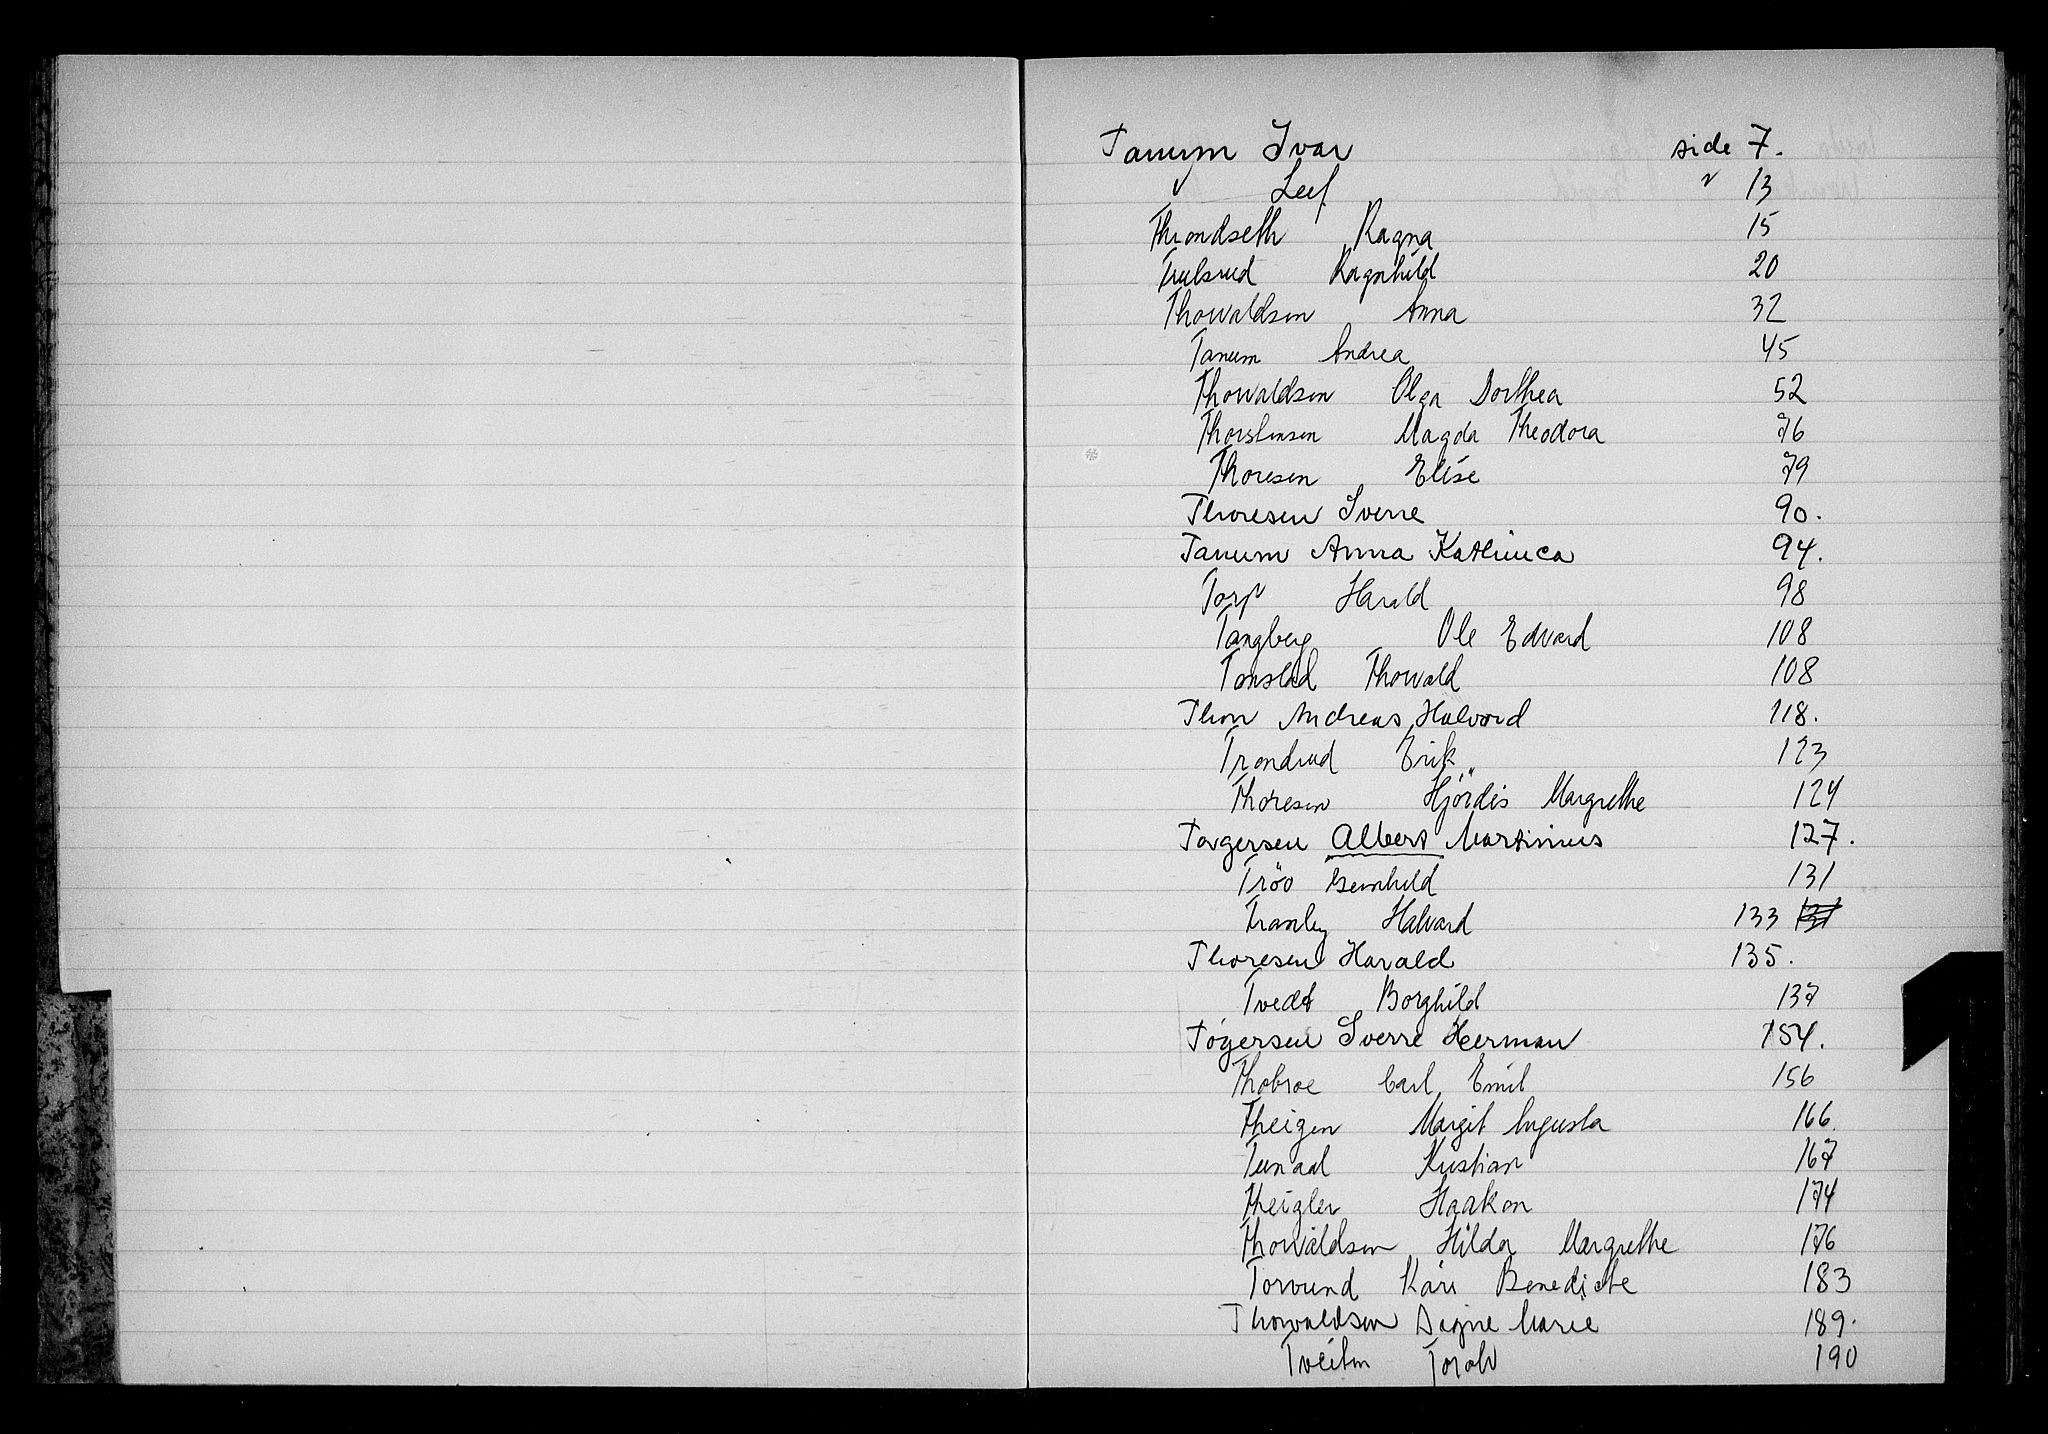 Tanum Ivar side 7.
" Leif " 13
Throndseth Ragna 15
Trulsrud Ragnhild 20
Thorvaldsen Anna 32
Tanum Andrea 45
Thorvaldsen Olga Dorthea 52
Thorstensen Magda Theodora 76
Thoresen Elise 79
Thoresen Sverre 90.
Tanum Anna Kathinca 94.
Torp Harald 98
Tangberg Ole Edvard 108
Tonstad Thorvald 108
Thon Andreas Halvord 118.
Trondrud Erik 123
Thoresen Hjördis Margrethe 124
Torgersen Albert Martinius 127.
Tröo Gunhild 131
Tranby Halvard 133 131
Thoresen Harald 135.
Tvedt Borghild 137
Tøgersen Sverre Herman 154.
Thobroe Carl Emil 156
Theigen Margit Augusta 166.
Tunaal Kristian 167
Theigler Haakon 174
Thorvaldsen Hilda Margrethe 176
Torvund Kari Benedicte 183
Thorvaldsen Signe Marie 189.
Tveiten Torolv 190